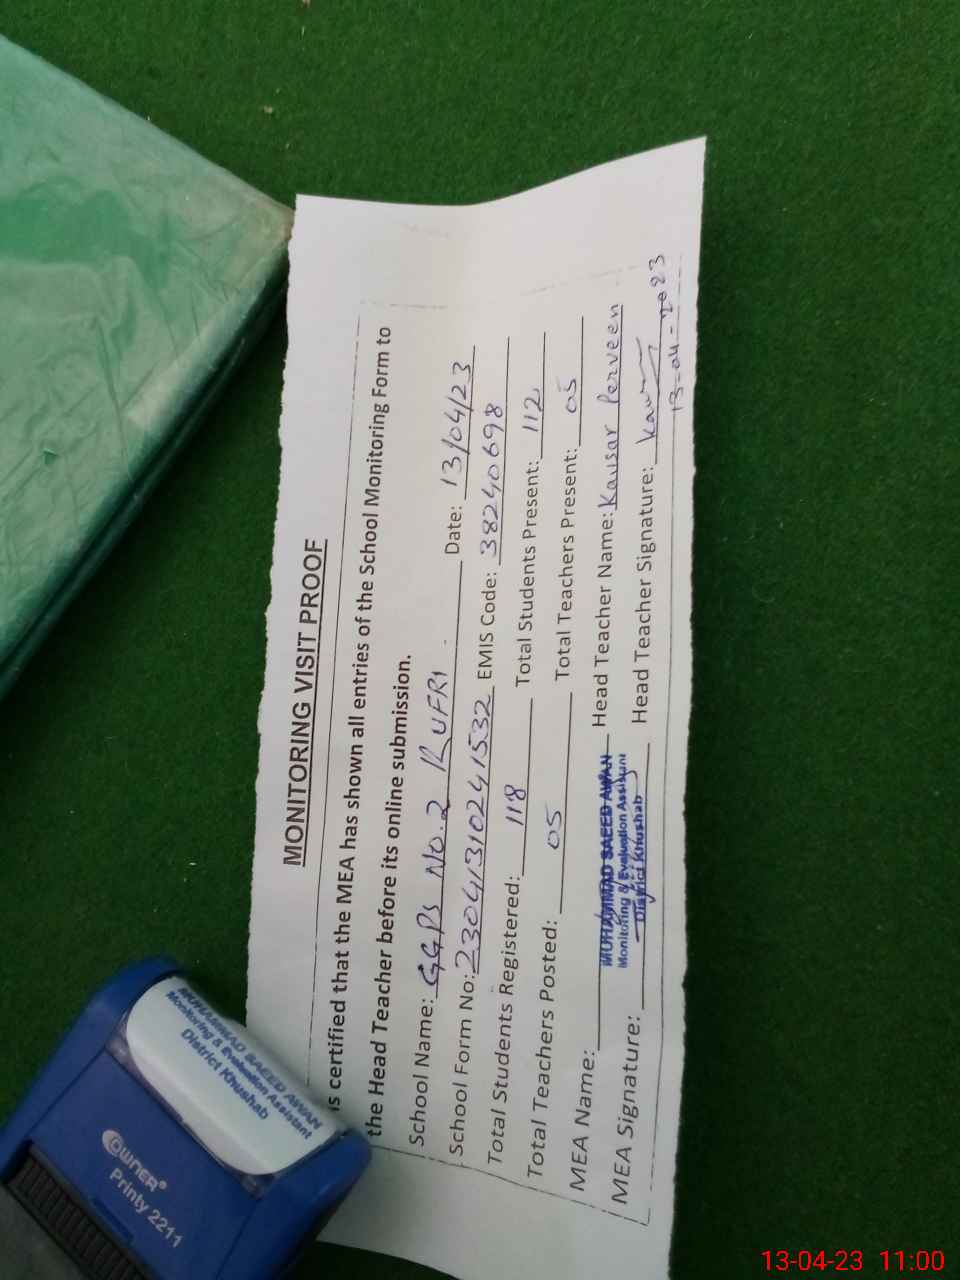 MONITORING VISIT PROOF
is certified that the MEA has shown all entries of the School Monitoring Form to
the Head Teacher before its online submission.
School Name: GGPS No.2 RUFRI Date: 13/04/23
School Form No: 23041310241532 EMIS Code: 38240698
Total Students Registered: 118 Total Students Present: 112
Total Teachers Posted: 05 Total Teachers Present: 05
MEA Name: MUHAMMAD SAEED AWAN Head Teacher Name: Kausar Perveen
Monitoring & Evaluation Assistant
MEA Signature: District Khushab Head Teacher Signature: Kau
13-04-2023
MUHAMMAD SAEED AWAN
Monitoring & Evaluation Assistant
District Khushab
OWNER®
Printy 2211
13-04-23 11:00